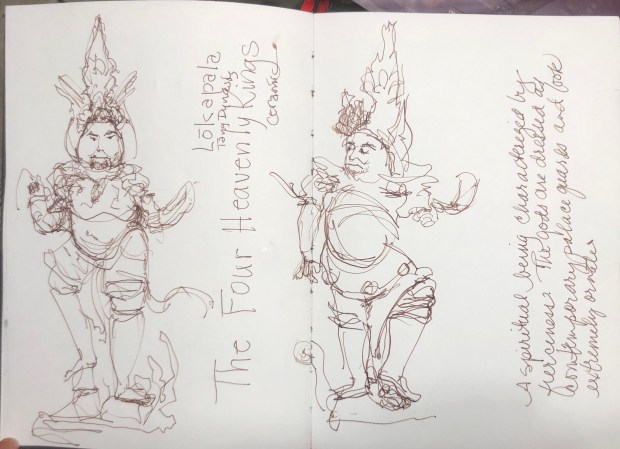 Lōkapala
Tang Dynasty
The Four Heavenly Kings
ceramic
A spiritual being characterized by
fierceness The Gods are dressed as
contemporary palace guards and look
extremely ornate